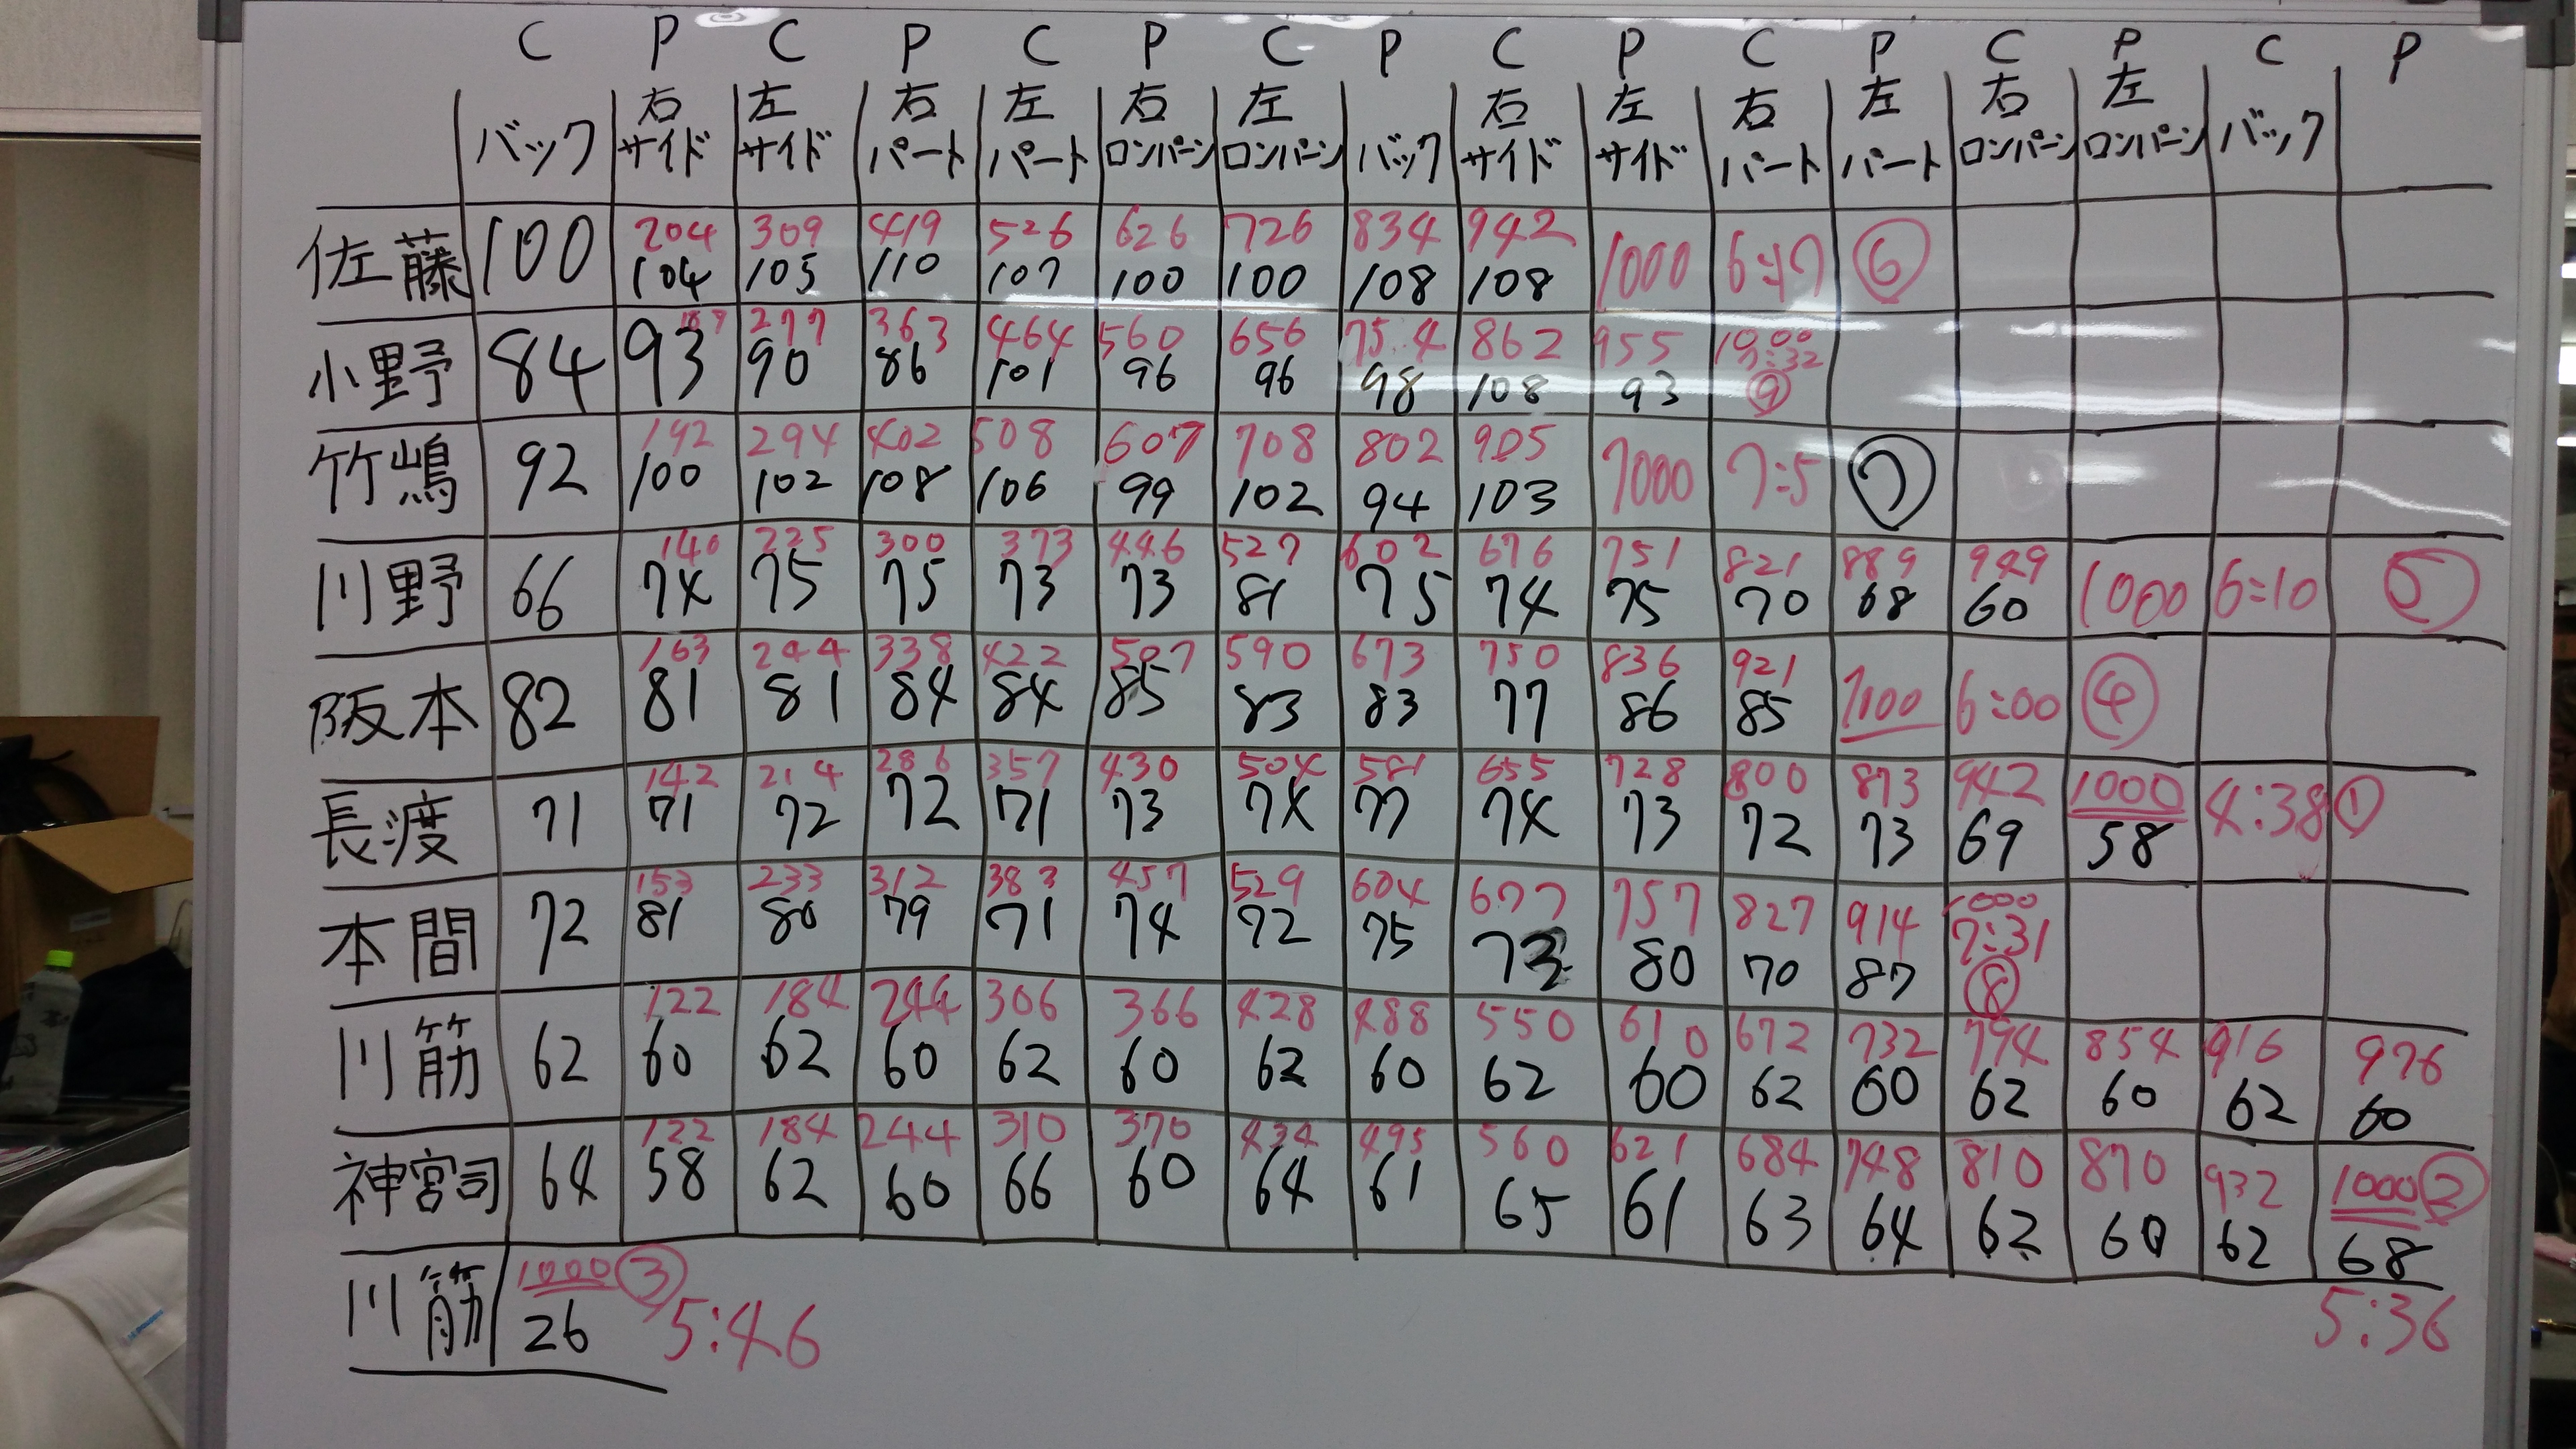 C P C P C P C P C P C P C P C P
バック 右サイド 左サイド 右パート 左パート 右ロンパーン 左ロンパーン バック 右サイド 左サイド 右パート 左パート 右ロンパーン 左ロンパーン バック
204 309 419 526 626 726 834 942
佐藤 100 104 105 110 107 100 100 108 108 1000 6:17 ⑥
277 363 464 560 656 754 862 955 1000
小野 84 93 90 86 101 96 96 98 108 93 7:32 ⑨
192 294 402 508 607 708 802 905
竹嶋 92 100 102 108 106 99 102 94 103 1000 7:5 ⑦
140 225 300 373 446 527 602 676 751 821 889 949
川野 66 74 75 75 73 73 81 75 74 75 70 68 60 1000 6:10 ⑤
163 244 338 422 507 590 673 750 836 921
阪本 82 81 81 84 84 85 83 83 77 86 85 1000 6:00 ④
142 214 286 357 430 504 581 655 728 800 873 942 1000
長渡 71 71 72 72 71 73 74 77 74 73 72 73 69 58 4:38 ①
153 233 312 383 457 529 604 677 757 827 914 1000
本間 72 81 80 79 71 74 72 75 73 80 70 87 7:31 ⑧
122 184 244 306 366 428 488 550 610 672 732 794 854 916 976
川筋 62 60 62 60 62 60 62 60 62 60 62 60 62 60 62 60
122 184 244 310 370 434 495 560 621 684 748 810 870 932 1000 ②
神宮司 64 58 62 60 66 60 64 61 65 61 63 64 62 60 62 68
1000 ③ 5:36
川筋 26 5:46